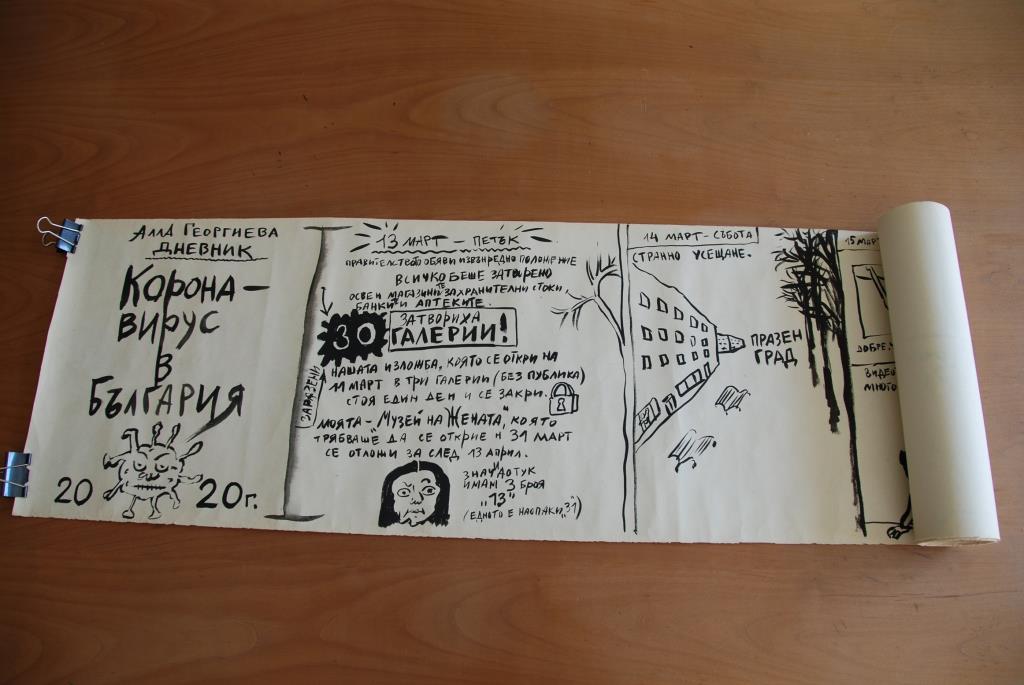 Алла Георгиева
Дневник
Корона-
вирус
в
България
20 20г.
13 март – петък
правителството обяви извънредно положение
всичко беше затворено
освен магазините за хранителни стоки,
банки и аптеките.
30
заразени
затвориха
галерии!
нашата изложба, която се откри на
11 март в три галерии (без публика)
стоя един ден и се закри.
моята – "Музей на Жената", която
трябваше да се открие н 31 март
се отложи за след 13 април.
значи дотук
имам 3 броя
"13"
(едното е наопаки "31")
14 март – събота
странно усещане.
празен
град
15 март
добре,
видео
много